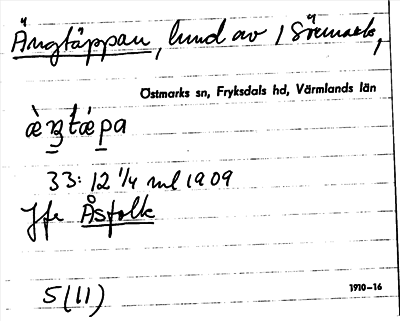 Ängtäppan, lund av 1 Sörmark,
Östmarks sn, Fryksdals hd, Värmlands län
æ̀ŋtǽpa
33: 12 1/4 ml 1909
Jfr Åsfolk
5(11)
1910-16